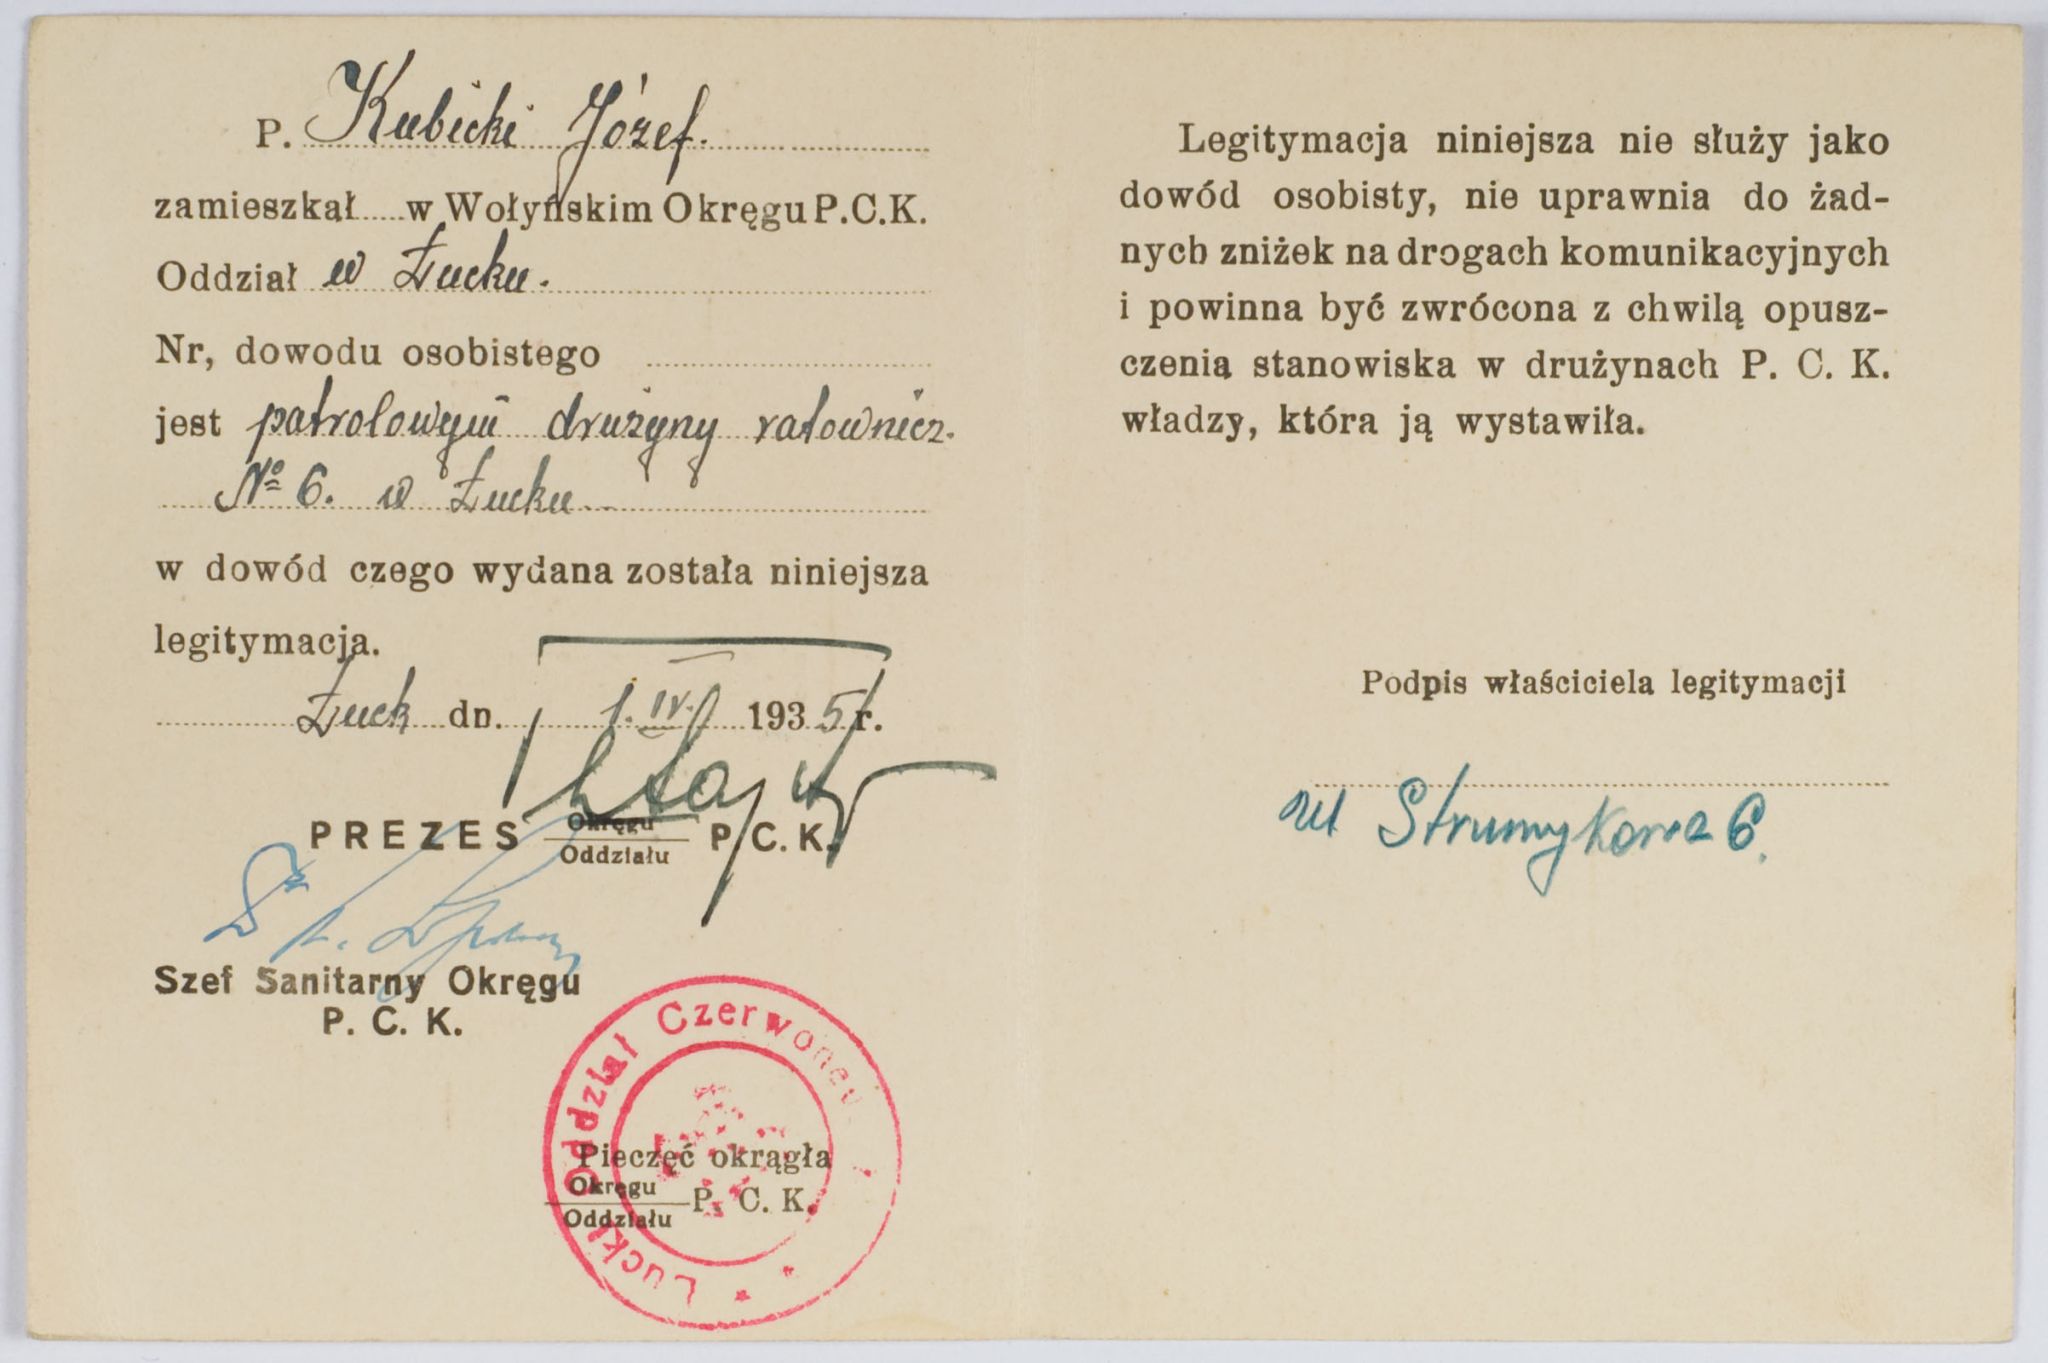 P. Kubicki Józef.
zamieszkał.....w Wołyńskim Okręgu P.C.K.
Oddział w Łucku.
Nr, dowodu osobistego
jest patrolowym drużyny ratownicz.
№ 6. w Łucku
w dowód czego wydana została niniejsza
legitymacja.
Łuck dn. 1. IV. 1935 r.
PREZES Okręgu P. C. K.
Oddziału
Szef Sanitarny Okręgu
P. C. K.
Łucki Oddział Czerwone
Pieczęć okrągła
Okręgu P. C. K.
Oddziału
Legitymacja niniejsza nie służy jako
dowód osobisty, nie uprawnia do żad-
nych zniżek na drogach komunikacyjnych
i powinna być zwrócona z chwilą opusz-
czenia stanowiska w drużynach P. C. K.
władzy, która ją wystawiła.
Podpis właściciela legitymacji
ul Strumykowa 6.